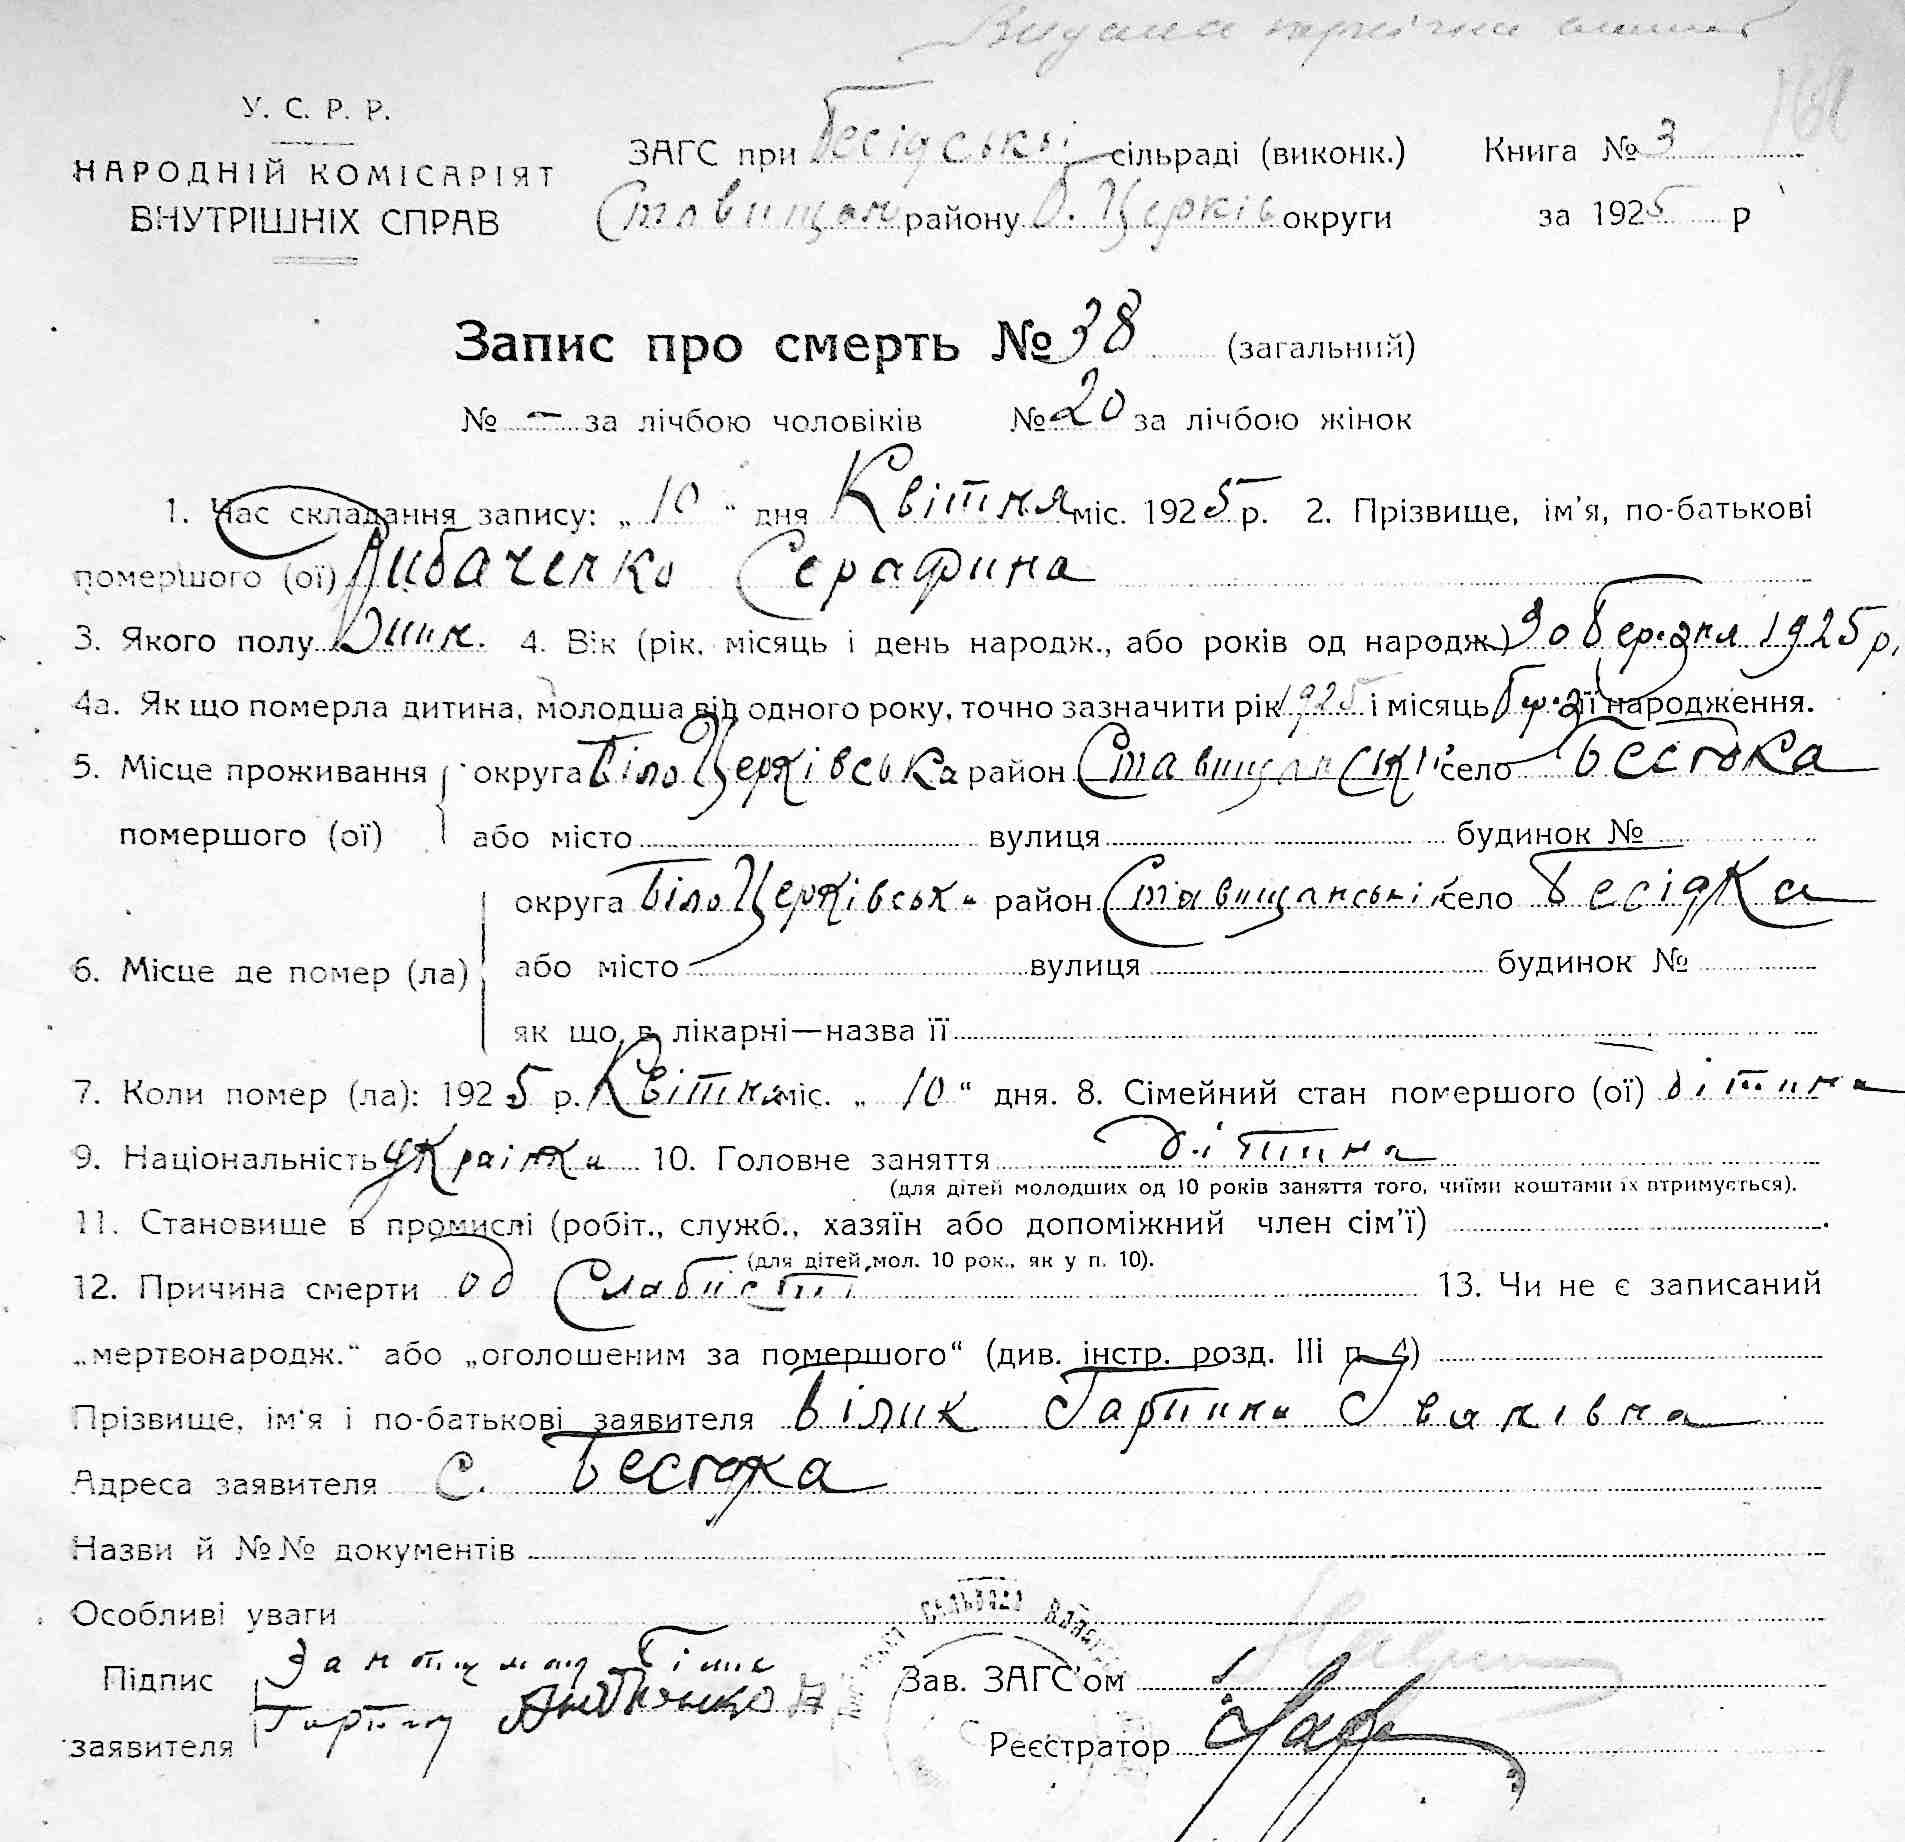 Видана
У. С. Р. Р.
НАРОДНІЙ КОМІСАРІЯТ
ВНУТРІШНІХ СПРАВ
ЗАГС при Бесідській сільраді (виконк.) Книга № 3
Ставищан району Б. Церків округи за 1925 р
Запис про смерть № 38 (загальний)
№ – за лічбою чоловіків № 20 за лічбою жінок
1. Час складання запису: „ 10 “ дня Квітня міс. 1925 р. 2. Прізвище, ім’я, по-батькові
помершого (ої) Серафина
3. Якого полу 4. Вік (рік, місяць і день народж., або років од народж.) 30 березня 1925 р.
4а. Як що померла дитина, молодша від одного року, точно зазначити рік 1925 і місяць бер. її народження.
5. Місце проживання округа БілоЦерківська район Ставищанськ село Бесідка
помершого (ої) або місто вулиця будинок №
округа БілоЦерківська район Ставищанські село Бесідка
6. Місце де помер (ла) або місто вулиця будинок №
як що в лікарні—назва її
7. Коли помер (ла): 1925 р. Квітня міс. „ 10 “ дня. 8. Сімейний стан помершого (ої) дітина
9. Національність українка 10. Головне заняття дітина
(для дітей молодших од 10 років заняття того, чиїми коштами їх втримується).
11. Становище в промислі (робіт., служб., хазяїн або допоміжний член сім’ї)
(для дітей, мол. 10 рок., як у п. 10).
12. Причина смерти од Слабисті 13. Чи не є записаний
„мертвонародж.“ або „оголошеним за помершого“ (див. інстр. розд. III п. 4)
Прізвище, ім’я і по-батькові заявителя Білик Гарпина Іванівна
Адреса заявителя С. Бесідка
Назви й №№ документів
Особливі уваги
Підпис Зав. ЗАГС’ом
заявителя Реєстратор